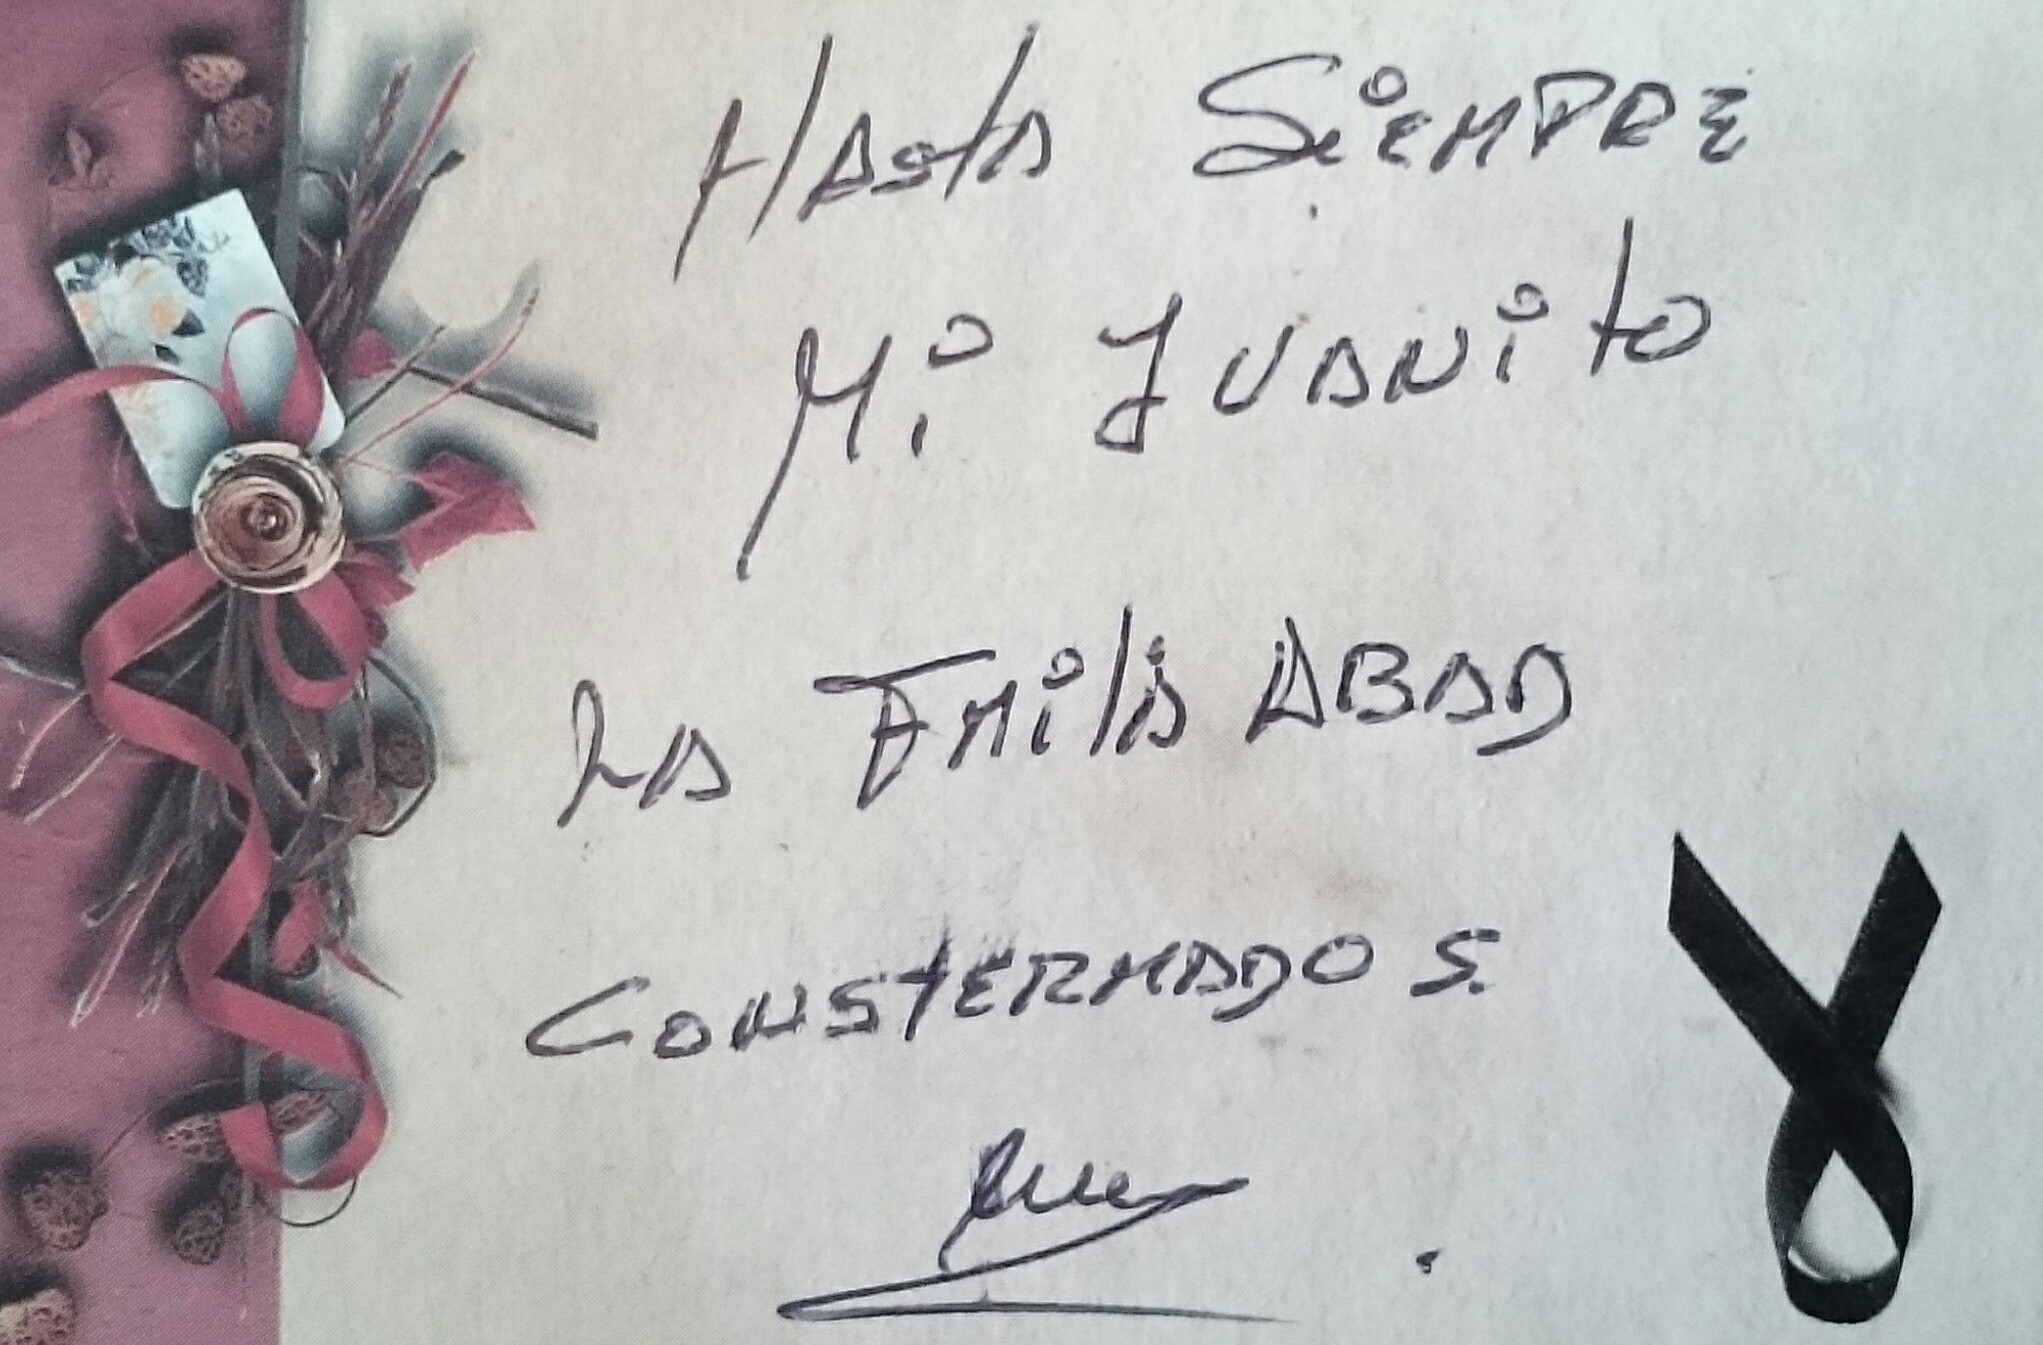 Hasta Siempre
Mi Juanito
La Fmilia ABAD
CONSTERNADOS.